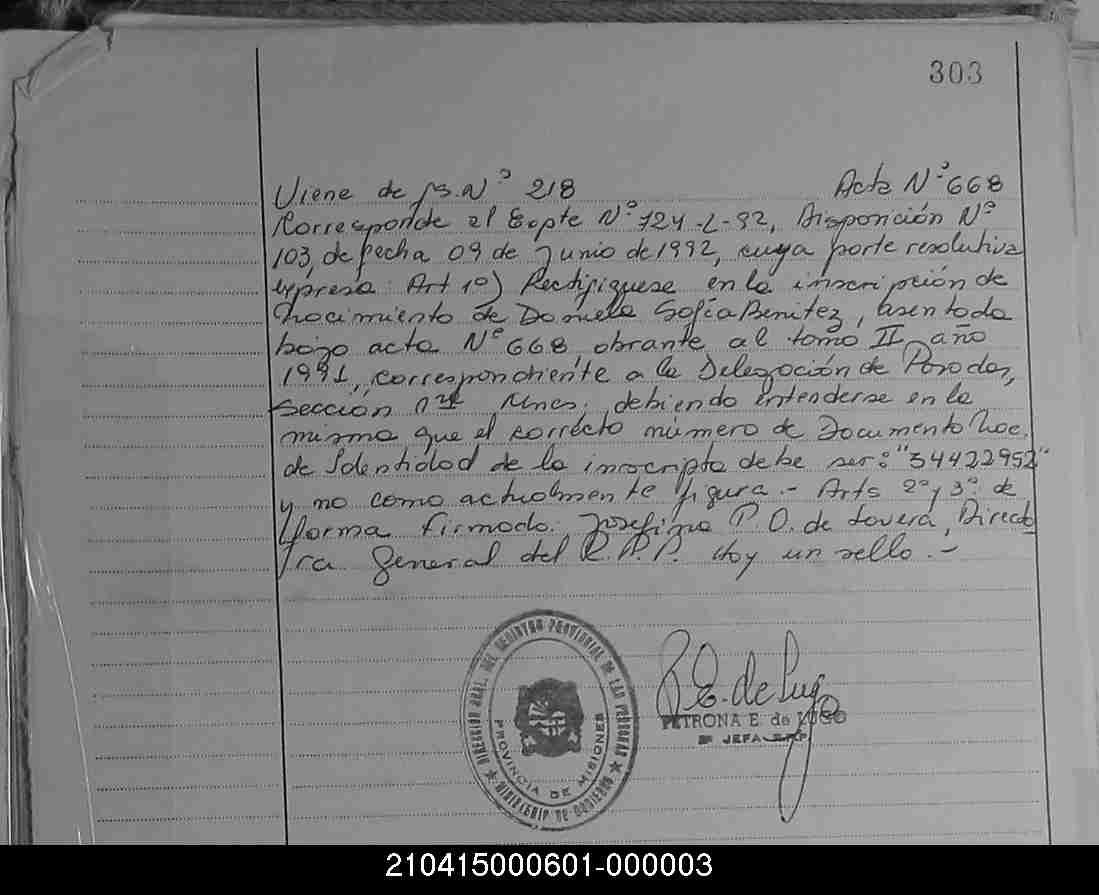 303
Viene de fs. Nº 218 Acta Nº 668
Corresponde al Expte Nº 724-L-92, Disposición Nº
103, de fecha 09 de Junio de 1992, cuya parte resolutiva
expresa: Art 1º) Rectifíquese en la inscripción de
Nacimiento de Daniela Sofía Benitez, asentada
bajo acta Nº 668, obrante al tomo II año
1991, correspondiente a la Delegación de Posadas,
Sección 1ra, Mnes. debiendo entenderse en la
misma que el correcto número de Documento Nac.
de Identidad de la inscripta debe ser: "34422952"
y no como actualmente figura.- Arts 2º y 3º de
forma Firmado: Josefina P.O. de Lovera, Directo
ra General del R.P.P. Hay un sello.-
DIRECCIÓN GRAL. DEL REGISTRO PROVINCIAL DE LAS PERSONAS
PROVINCIA DE MISIONES
MINISTERIO DE GOBIERNO
P. E. de Lugo
PETRONA E. de LUGO
JEFA
210415000601-000003